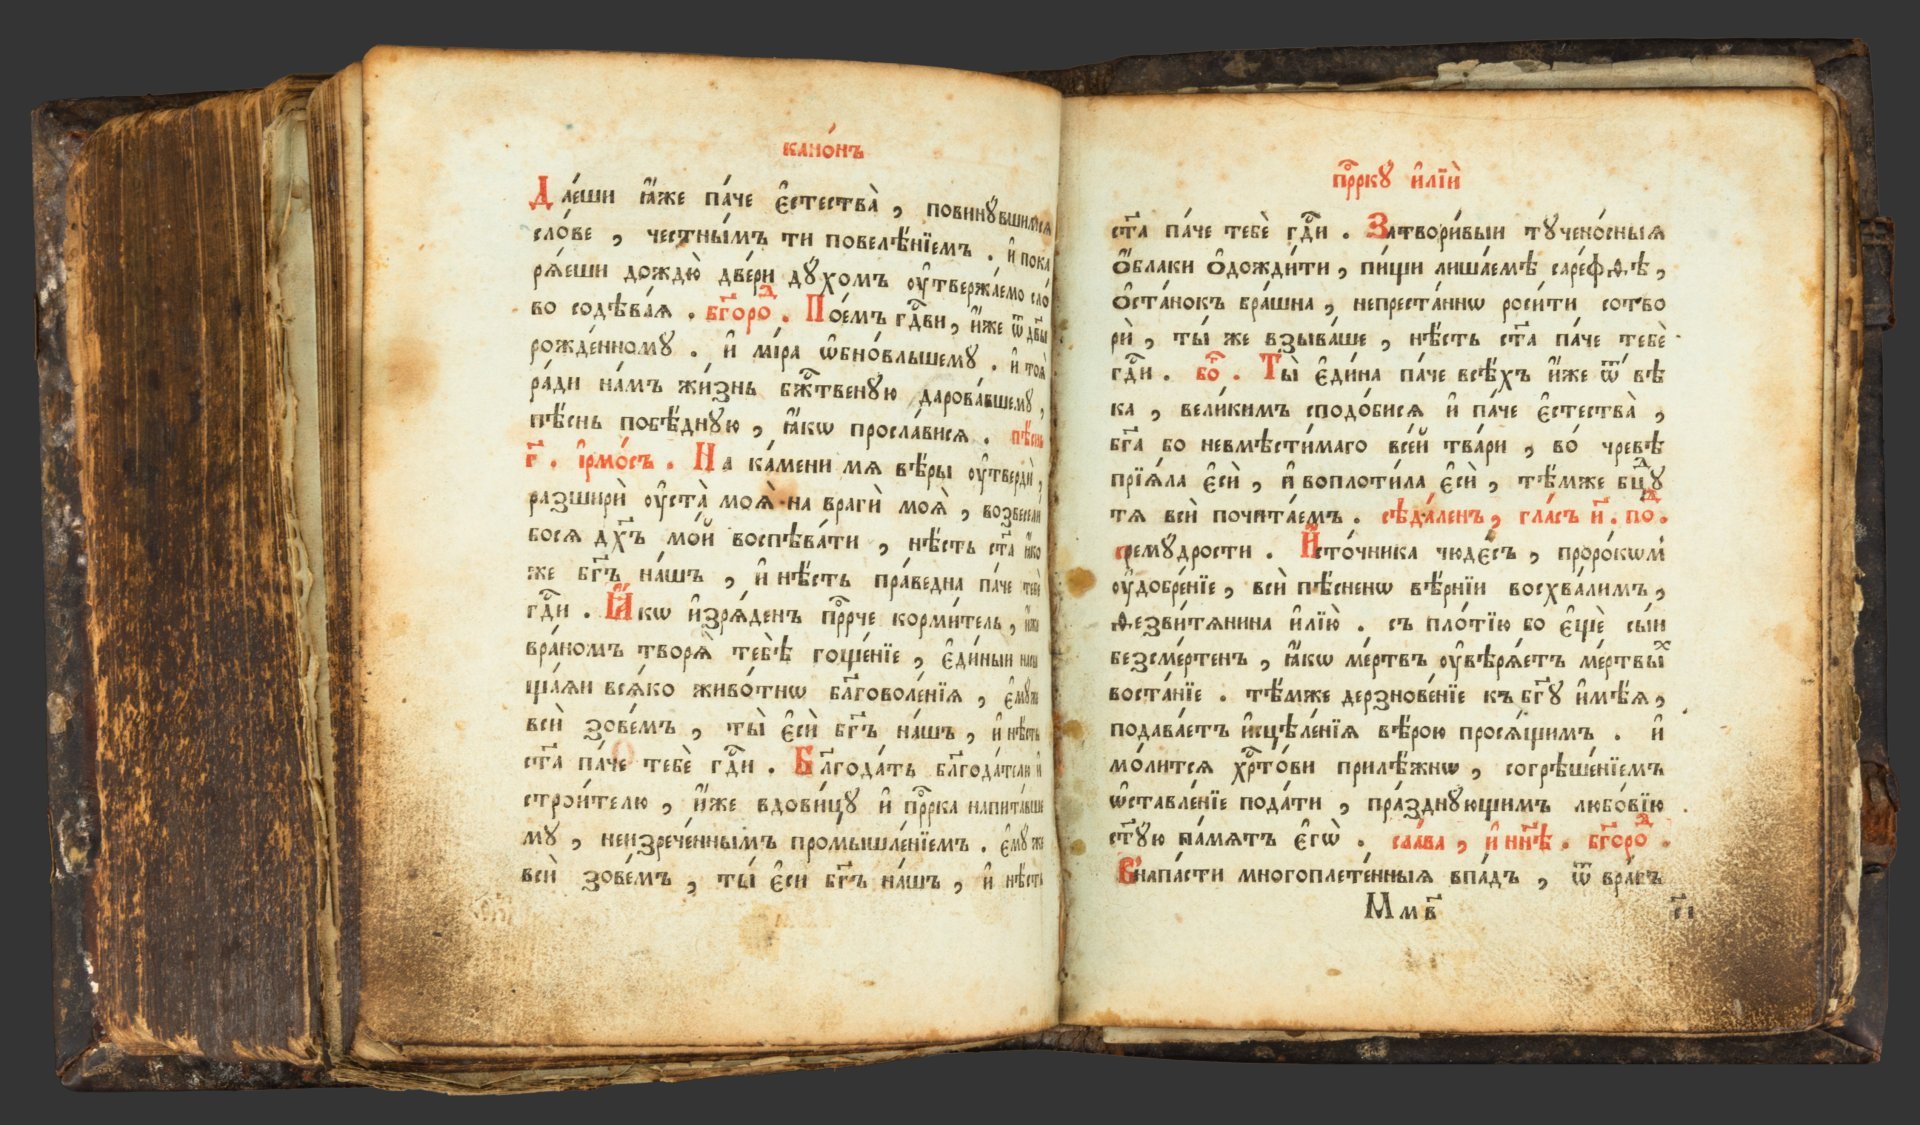 канѡ́нъ
Дае́ши ꙗ҆́же па́че є҆стества̀, повинꙋ́вшимсѧ
сло́ве, че́стнымъ ти повелѣ́нїемъ. и҆ пока
рѧ́еши дождю̀ две́ри дꙋ́хомъ ᲂу҆твержа́емо сло́
во содѣва́ѧ. бг҃оро́ⷣ. Пое́мъ гдⷭ҇ви, и҆́же ѿ дв҃ы
рожде́нномꙋ. и҆ мі́ра ѡ҆бно́вльшемꙋ. и҆ тоѧ̀
ра́ди на́мъ жи́знь бжⷭ҇твенꙋю дарова́вшемꙋ,
пѣ́снь побѣ́днꙋю, ꙗ҆́кѡ просла́висѧ. пѣ́снь
г҃. і҆рмо́съ. На ка́мени мѧ вѣ́ры ᲂу҆твердѝ,
разширѝ ᲂу҆ста̀ моѧ̀ на врагѝ моѧ̀, возвесели
босѧ дх҃ъ мо́й воспѣва́ти, нѣ́сть ст҃а ꙗ҆́ко
же бг҃ъ на́шъ, и҆ нѣ́сть пра́ведна па́че тебѐ
гдⷭ҇и. Ꙗ҆́кѡ и҆зрѧ́денъ прⷪ҇рче корми́тель, и҆́же
вра́номъ творѧ̀ тебѣ̀ гоще́нїе, є҆ди́ный насы
ща́ѧи всѧ́ко живо́тнѡ блг҃оволе́нїѧ, є҆мꙋ́же
всѝ зове́мъ, ты̀ є҆сѝ бг҃ъ на́шъ, и҆ нѣ́сть
ст҃а па́че тебѐ гдⷭ҇и. Блг҃ода́ть блг҃ода́тели и҆
строи́телю, и҆́же вдови́цꙋ и҆ прⷪ҇рка напита́вше
мꙋ, неизрече́ннымъ промышле́нїемъ. є҆мꙋ́же
всѝ зове́мъ, ты́ є҆си бг҃ъ на́шъ, и҆ нѣ́сть
прⷪ҇ркꙋ и҆лїѝ
ст҃а па́че тебѐ гдⷭ҇и. Затвори́выи тꙋчено́сныѧ
ѻ҆́блаки ѻ҆дожди́ти, пи́щи лиша́емѣ саре́фѳѣ,
ѻ҆ста́нокъ бра́шна, непреста́ннѡ роси́ти сотво
рѝ, ты́ же взыва́ше, нѣ́сть ст҃а па́че тебѐ
гдⷭ҇и. боⷢ҇. Ты̀ є҆ди́на па́че всѣ́хъ и҆́же ѿ вѣ
ка, вели́кимъ сподо́бисѧ и҆ па́че є҆стества̀,
бг҃а бо невмѣсти́маго все́й тва́ри, во́ чревѣ
прїѧ́ла є҆сѝ, и҆ воплоти́ла є҆сѝ, тѣ́мже бцⷣꙋ
тѧ всѝ почита́емъ. сѣда́ленъ, гла́съ и҃. поⷣ.
премꙋдрости. И҆сто́чника чюде́съ, проро́кѡмъ
ᲂу҆добре́нїе, всѝ пѣ́сненѡ вѣ́рнїи восхва́лимъ,
ѳезви́тѧнина и҆лїю̀. съ пло́тїю бо є҆щѐ сы́и
безсме́ртенъ, ꙗ҆́кѡ ме́ртвъ ᲂу҆вѣрѧ́етъ ме́ртвыⷯ
воста́нїе. тѣ́мже дерзнове́нїе къ бг҃ꙋ и҆мѣ́ѧ,
подава́етъ и҆сцѣле́нїѧ вѣ́рою просѧ́щимъ. и҆
мо́литсѧ хрⷭ҇то́ви прилѣ́жнѡ, согрѣше́нїемъ
ѡ҆ставле́нїе пода́ти, пра́зднꙋющимъ любо́вїю
ст҃ꙋ́ю па́мѧть є҆гѡ̀. сла́ва, и҆ нн҃ѣ. бг҃оро́ⷣ.
Внапа́сти многоплете́нныѧ впа́дъ, ѿ вра́гъ
Ммв҃